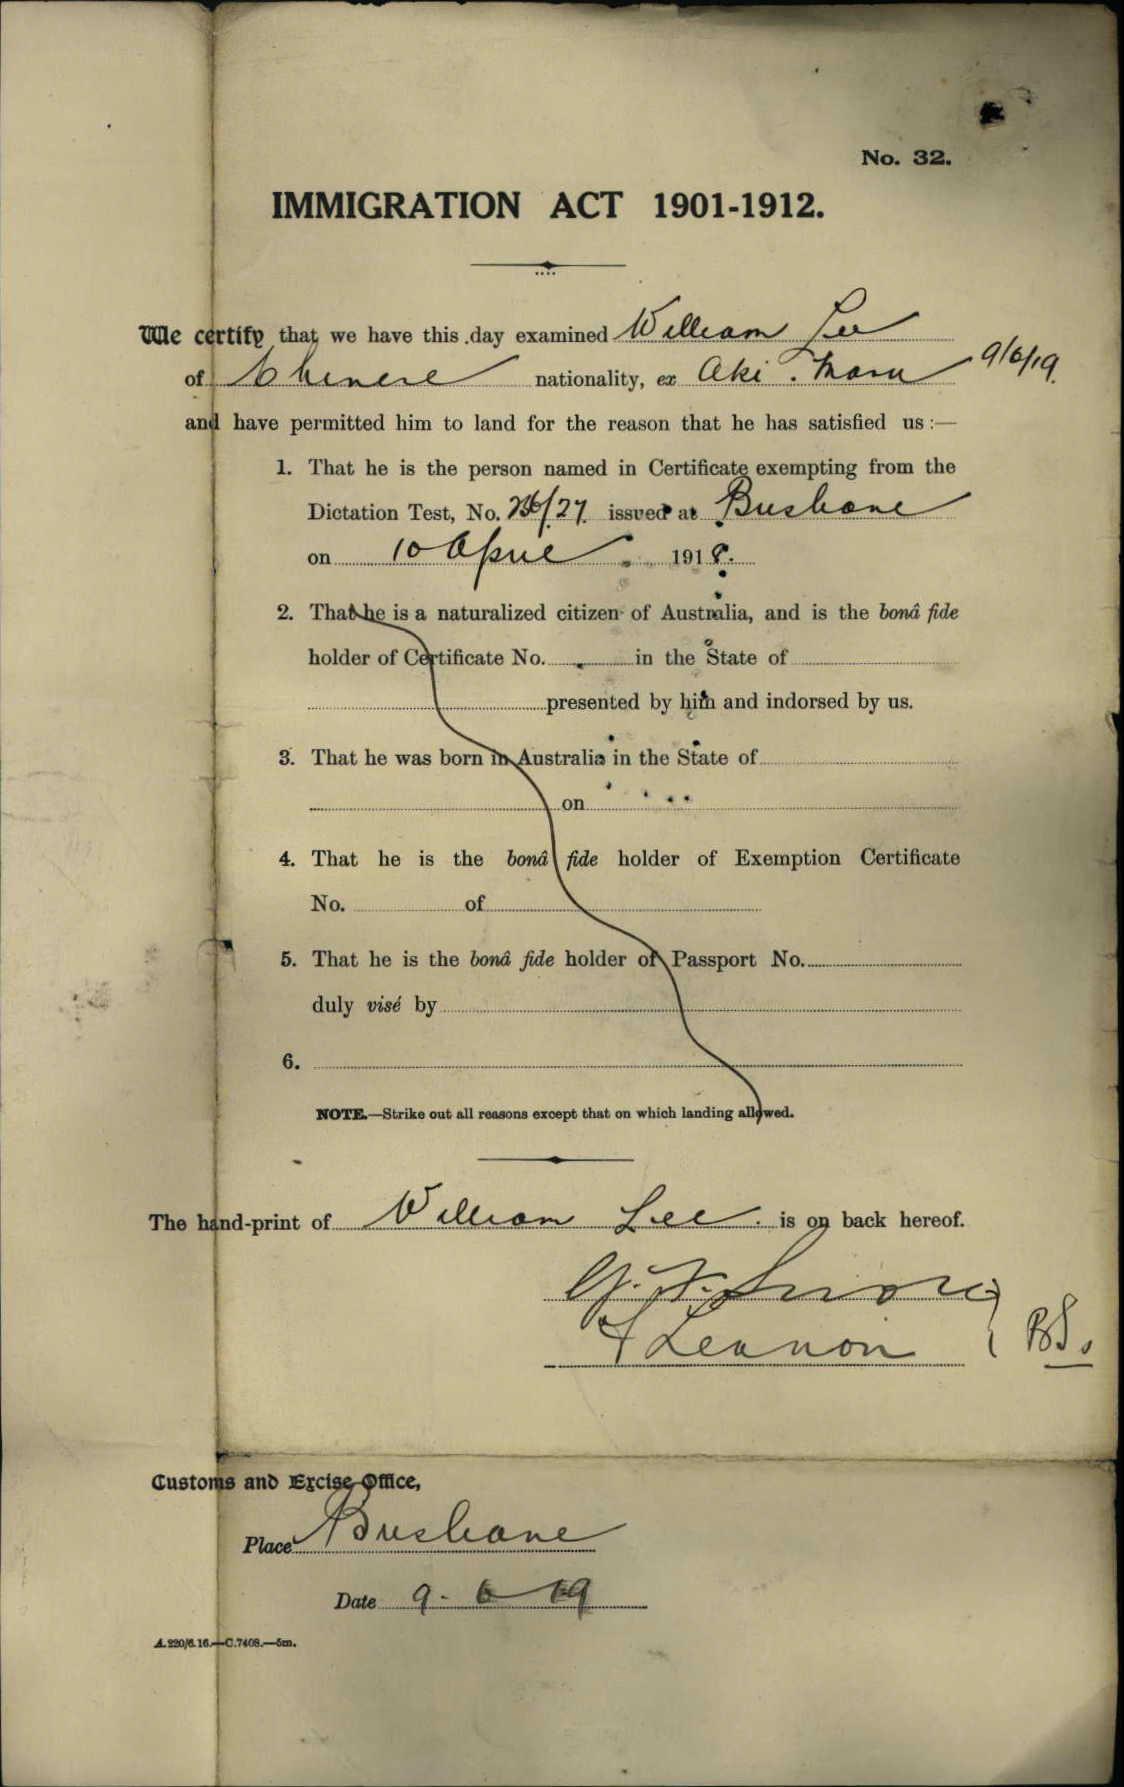 No. 32.
IMMIGRATION ACT 1901-1912.
We certify that we have this day examined William Lee
of Chinese nationality, ex Aki Maru 9/6/19.
and have permitted him to land for the reason that he has satisfied us:—
1. That he is the person named in Certificate exempting from the
Dictation Test, No. /27 issued at Brisbane
on 10 April 1918.
2. That he is a naturalized citizen of Australia, and is the bonâ fide
holder of Certificate No. in the State of
presented by him and indorsed by us.
3. That he was born in Australia in the State of
on
4. That he is the bonâ fide holder of Exemption Certificate
No. of
5. That he is the bonâ fide holder of Passport No.
duly visé by
6.
NOTE.—Strike out all reasons except that on which landing allowed.
The hand-print of William Lee. is on back hereof.
Lennon
Customs and Excise Office,
Place Brisbane
Date 9. 6 19
A.220/6.16.—C.7408.—5m.